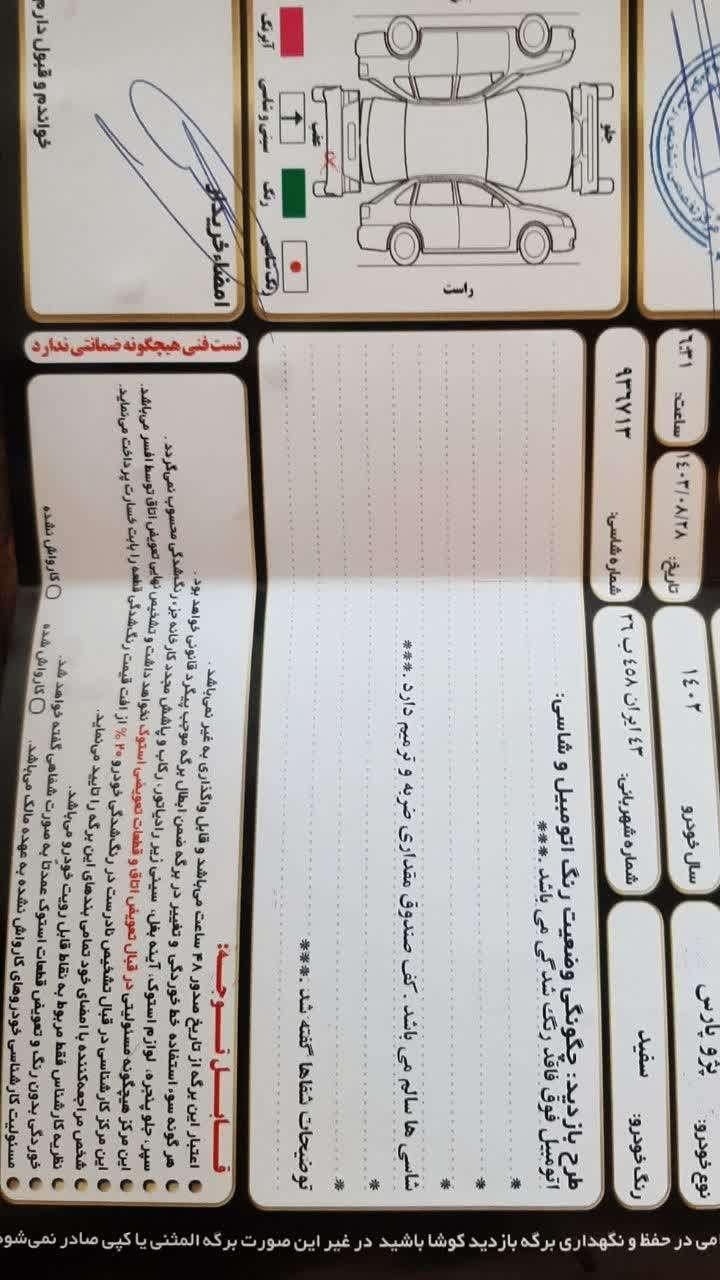 نوع خودرو: پژو پارس
سال خودرو ۱۴۰۲
تاریخ: ۱۴۰۳/۰۸/۲۸
ساعت: ۱۶:۳۱
رنگ خودرو: سفید
شماره شهربانی: ۴۳ ایران ۴۵۸ ب ۲۶
شماره شاسی: ۹۳۶۷۱۳
طرح بازدید: چگونگی وضعیت رنگ اتومبیل و شاسی:
اتومبیل فوق فاقد رنگ شدگی می باشد .***
*
*
*
*
شاسی ها سالم می باشد . کف صندوق مقداری ضربه و ترمیم دارد .***
*
*
توضیحات شفاها گفته شد .***
جلو
عقب
راست
آبرنگ
سینی و شاسی
رنگ
رنگ شاسی
قابل توجه:
اعتبار این برگه از تاریخ صدور ۴۸ ساعت می‌باشد و قابل واگذاری به غیر نمی‌باشد.
هر گونه سوء استفاده خط خوردگی و تغییر در برگه ضمن ابطال برگه موجب پیگرد قانونی خواهد بود.
سپر، جلو پنجره، لوازم استوک، آینه بغل، سینی زیر رادیاتور، رکاب و پاشش مجدد کارخانه جزء رنگ‌شدگی محسوب نمی‌گردد.
این مرکز هیچگونه مسئولیتی در قبال تعویض اتاق و قطعات تعویضی استوک نخواهد داشت و تشخیص نهایی تعویض اتاق توسط افسر می‌باشد.
این مرکز کارشناسی در قبال تشخیص نادرست در رنگ‌شدگی خودرو ۲۰ % از افت قیمت رنگ‌شدگی قطعه را بابت خسارت پرداخت می‌نماید.
شخص مراجعه‌کننده با امضای خود تمامی بندهای این برگه را تایید می‌نماید.
نظریه کارشناس فقط مربوط به نقاط قابل رویت خودرو می‌باشد.
خوردگی بدون رنگ و تعویض قطعات استوک عمدتاً به صورت شفاهی گفته خواهد شد.
مسئولیت کارشناسی خودروهای کارواش نشده به عهده مالک می‌باشد.
کارواش شده
کارواش نشده
تست فنی هیچگونه ضمانتی ندارد
امضاء خریدار
خواندم و قبول دارم
در حفظ و نگهداری برگه بازدید کوشا باشید در غیر این صورت برگه المثنی یا کپی صادر نمی‌شود